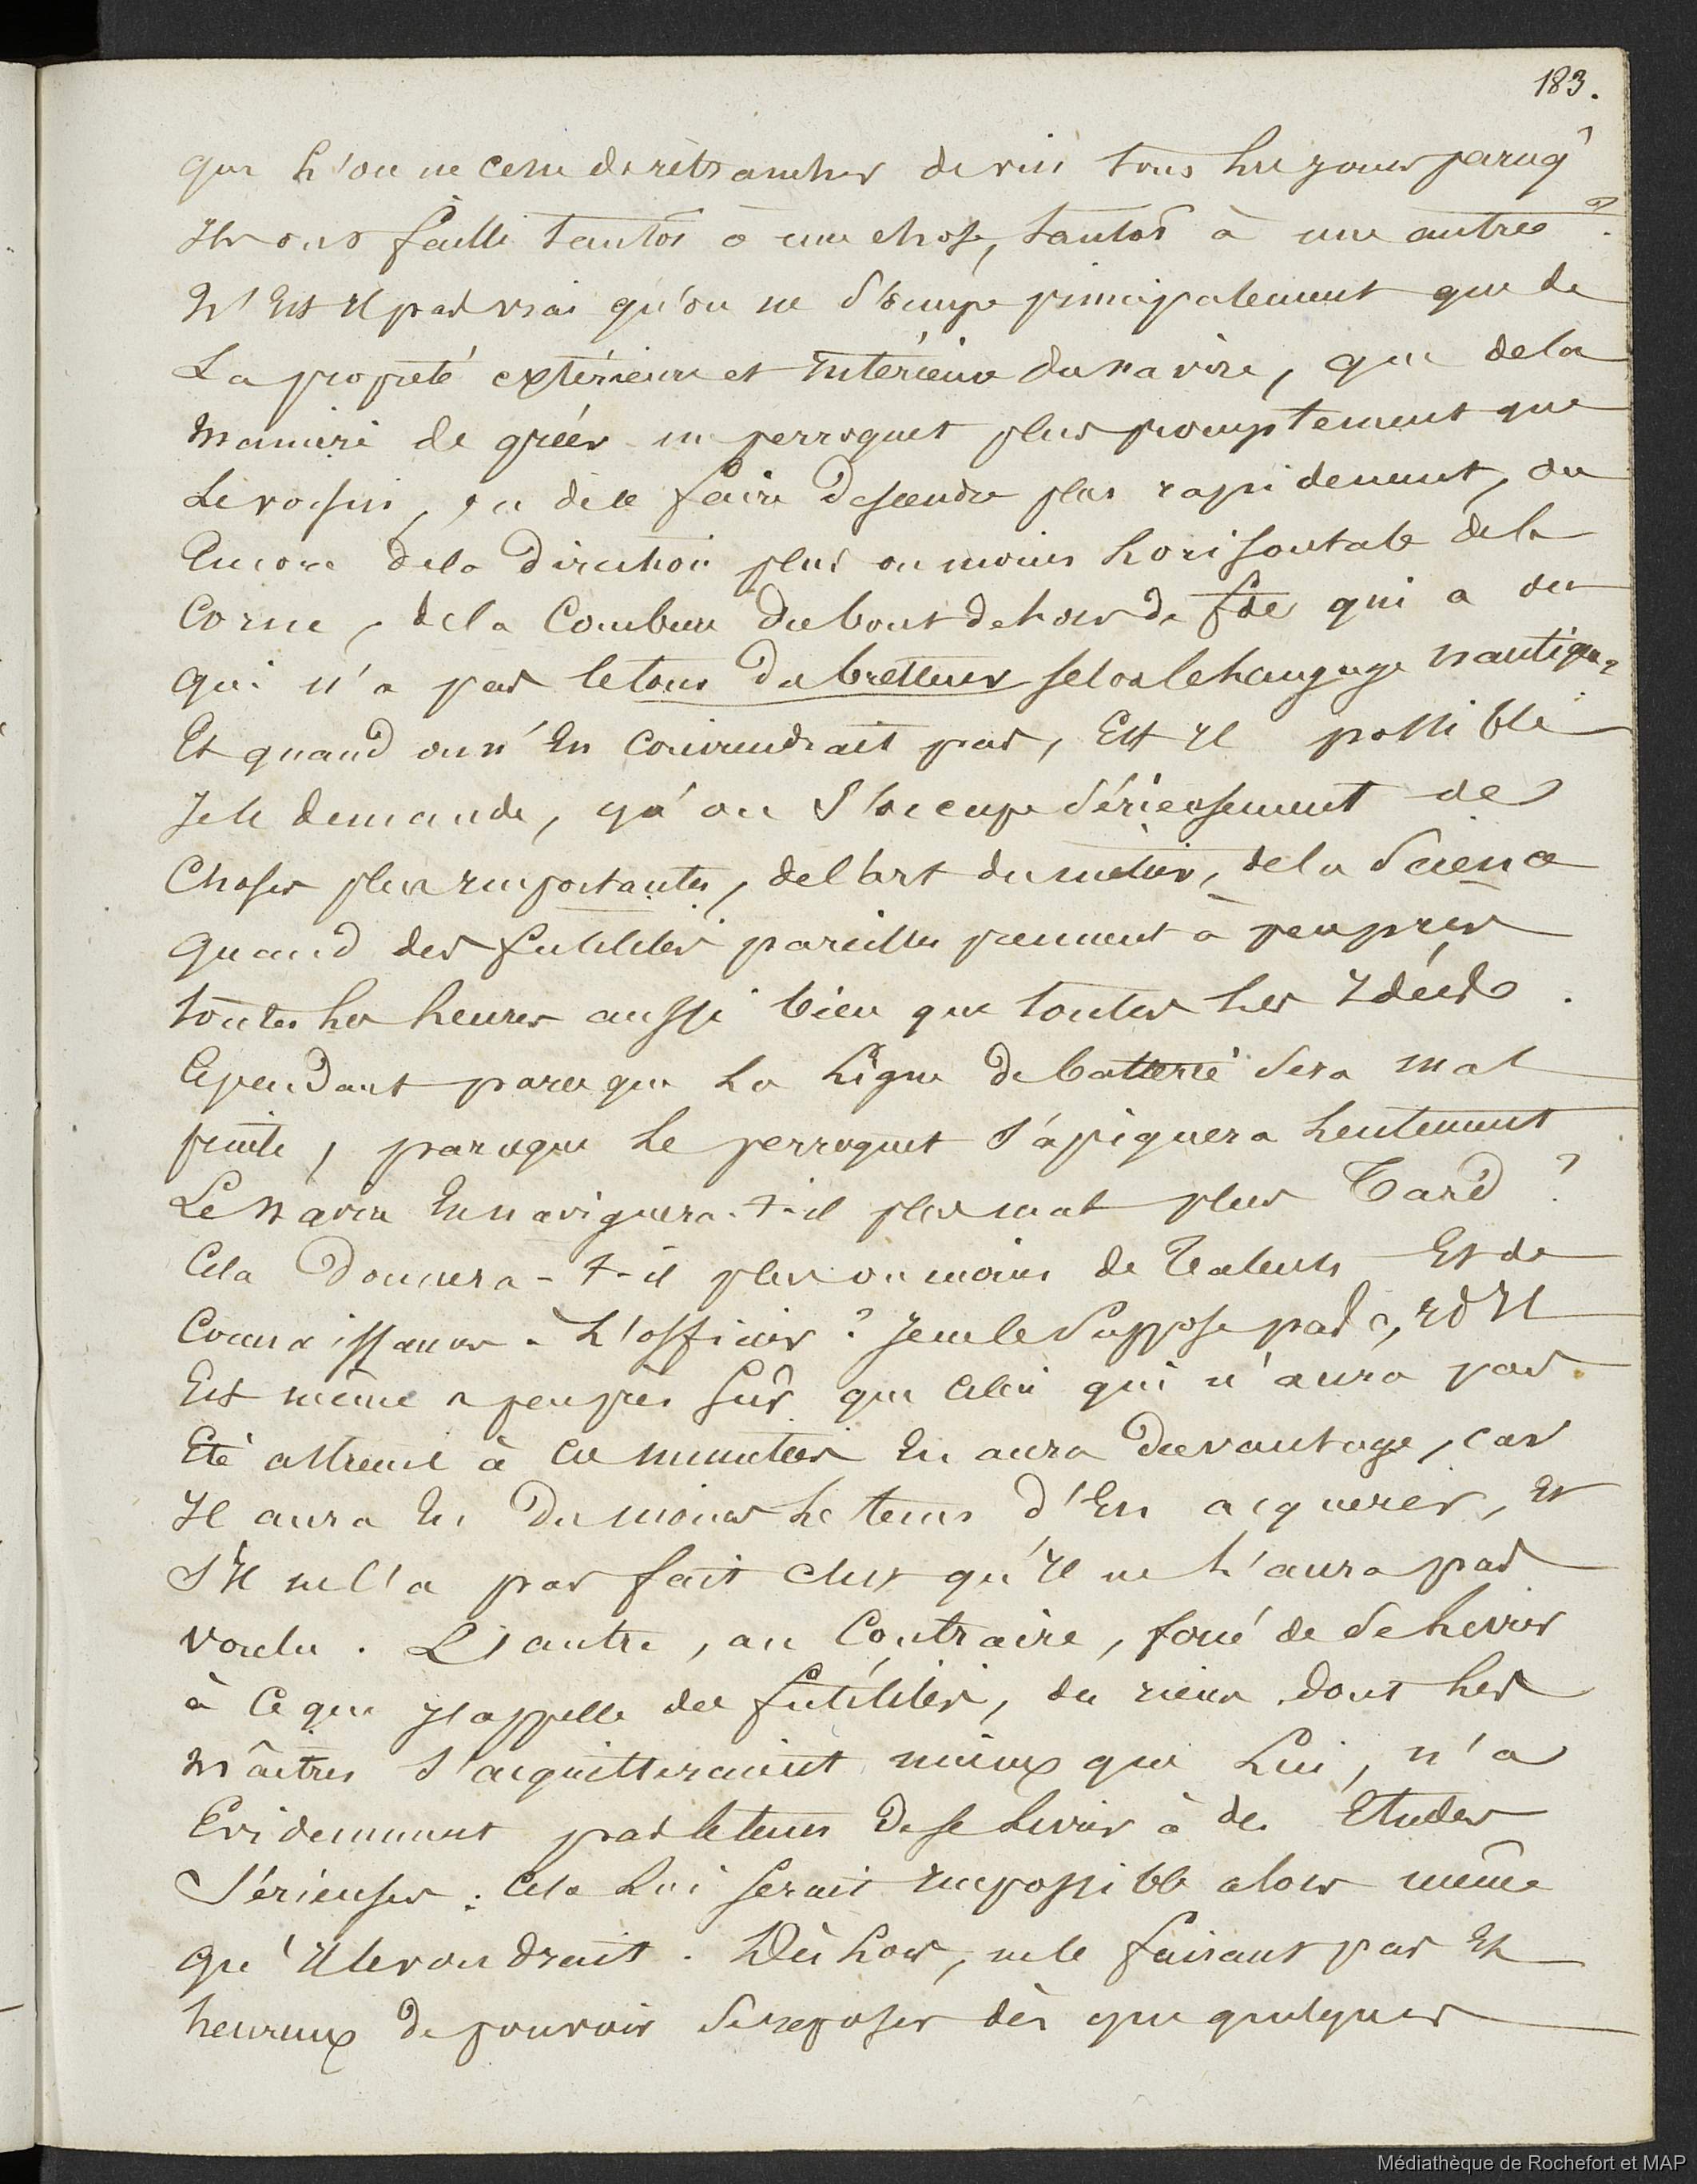 183.
que l'on ne cesse de retrancher de vin tous les jours parceq'
Ils ont failli tantôt à une chose, tantôt à une autre ?
N'Est Il pas vrai qu'on ne S'occupe principalement que de
La propreté extérieure et Intérieure du navire, que de la
maniere de gréer un perroquet plus promptement que
Le voisin, ou de le faire descendre plus rapidement, ou
Encore de la Direction plus ou moins horisontale de la
Corne, de la Courbure du bout dehors de foc qui a ou
qui n'a pas le tour du bretteur selon le langage nautique,
Et quand on n'En Conviendrait pas, Est Il possible
Je le demande, qu'on S'occupe Sérieusement de
Choses plus importantes, de l'art du métier, de la Science
quand des futilités pareilles prennent à peu près
toutes les heures aussi bien que toutes les Idées.
Cependant parce que La Ligne de batterie Sera mal
peinte, parceque Le perroquet S'apiquera Lentement
Le navire En naviguera-t-il plus mal plus Tard ?
Cela Donnera-t-il plus ou moins de Talents Et de
Connaissances à L'officier ? Je ne le Suppose pas, Il
Est même à peu près Sûr que Celui qui n'aura pas
Eté astreint à Ces minuties En aura davantage, car
Il aura Eu Du moins Le tems d'En acquerir, Et
S'Il ne l'a pas fait c'Est qu'Il ne L'aura pas
voulu. L'autre, au Contraire, forcé de Se Livrer
à Ce que J'appelle des futilités, du rien dont Les
maîtres S'acquitteraient mieux que Lui, n'a
Evidemment pas le tems De se Livrer à des Etudes
Sérieuses : Cela Lui serait impossible alors même
qu'Il le voudrait. Dès Lors, ne le faisant pas Et
heureux De pouvoir Se reposer dès que quelques
Médiathèque de Rochefort et MAP